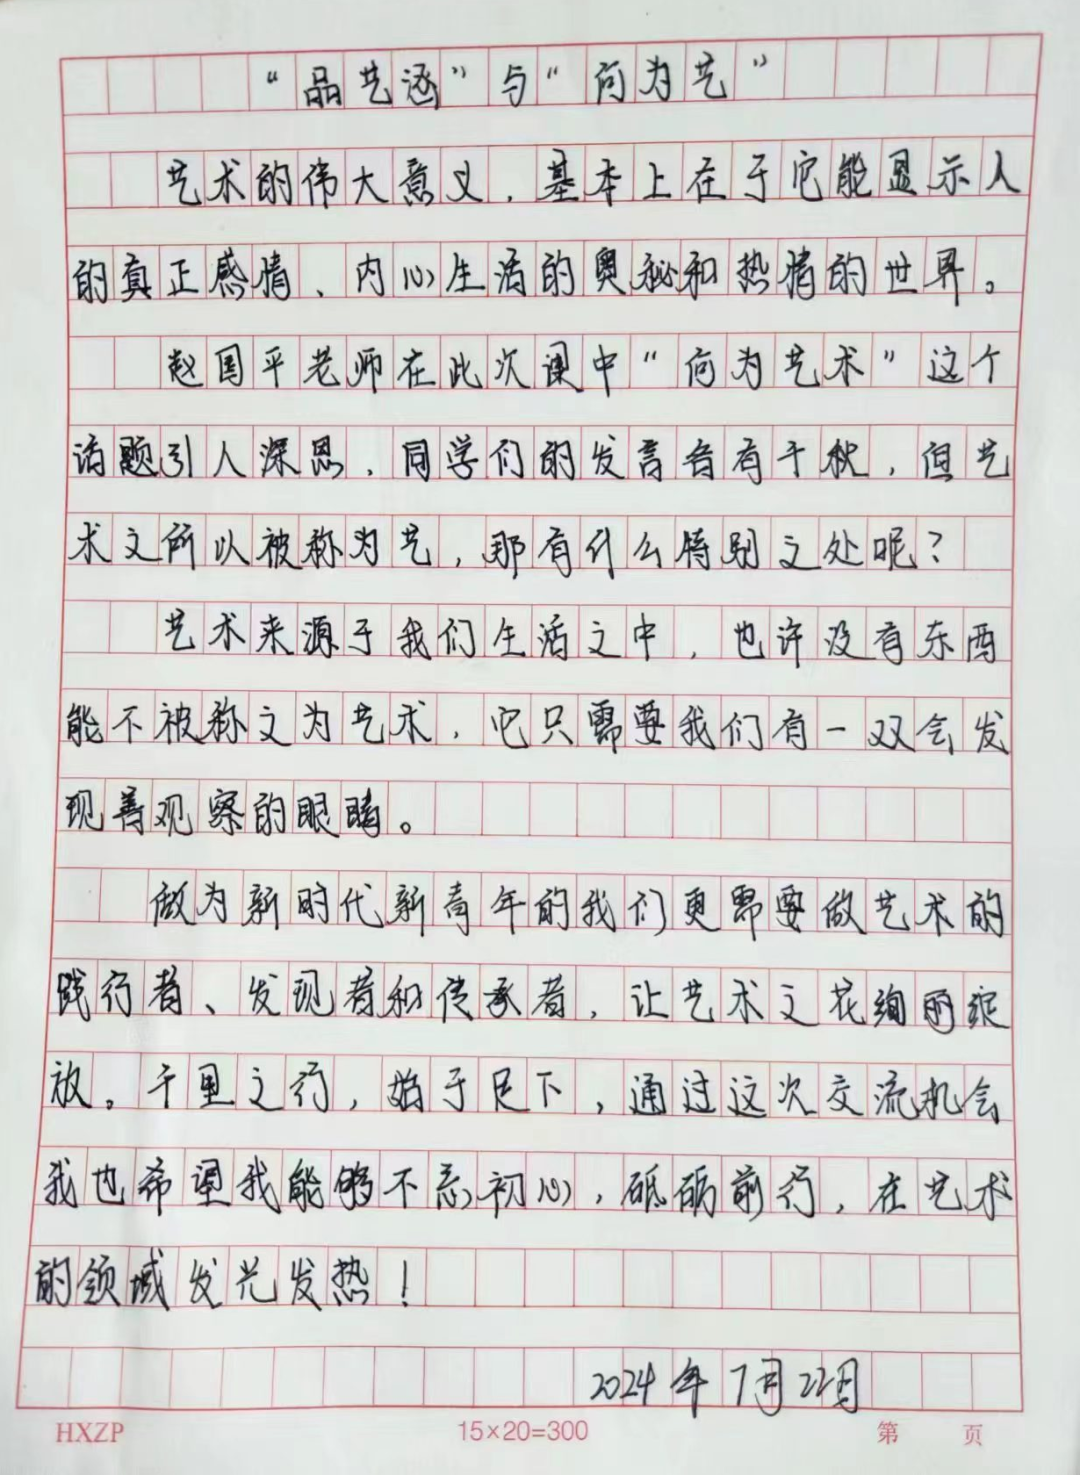 “品艺涵”与“何为艺”
艺术的伟大意义，基本上在于它能显示人
的真正感情、内心生活的奥秘和热情的世界。
赵国平老师在此次课中“何为艺术”这个
话题引人深思，同学们的发言各有千秋，但艺
术之所以被称为艺，那有什么特别之处呢？
艺术来源于我们生活之中，也许没有东西
能不被称之为艺术，它只需要我们有一双会发
现善观察的眼睛。
做为新时代新青年的我们更需要做艺术的
践行者、发现者和传承者，让艺术之花绚丽绽
放。千里之行，始于足下，通过这次交流机会
我也希望我能够不忘初心，砥砺前行，在艺术
的领域发光发热！
2024年7月22日
HXZP 15×20=300 第 页